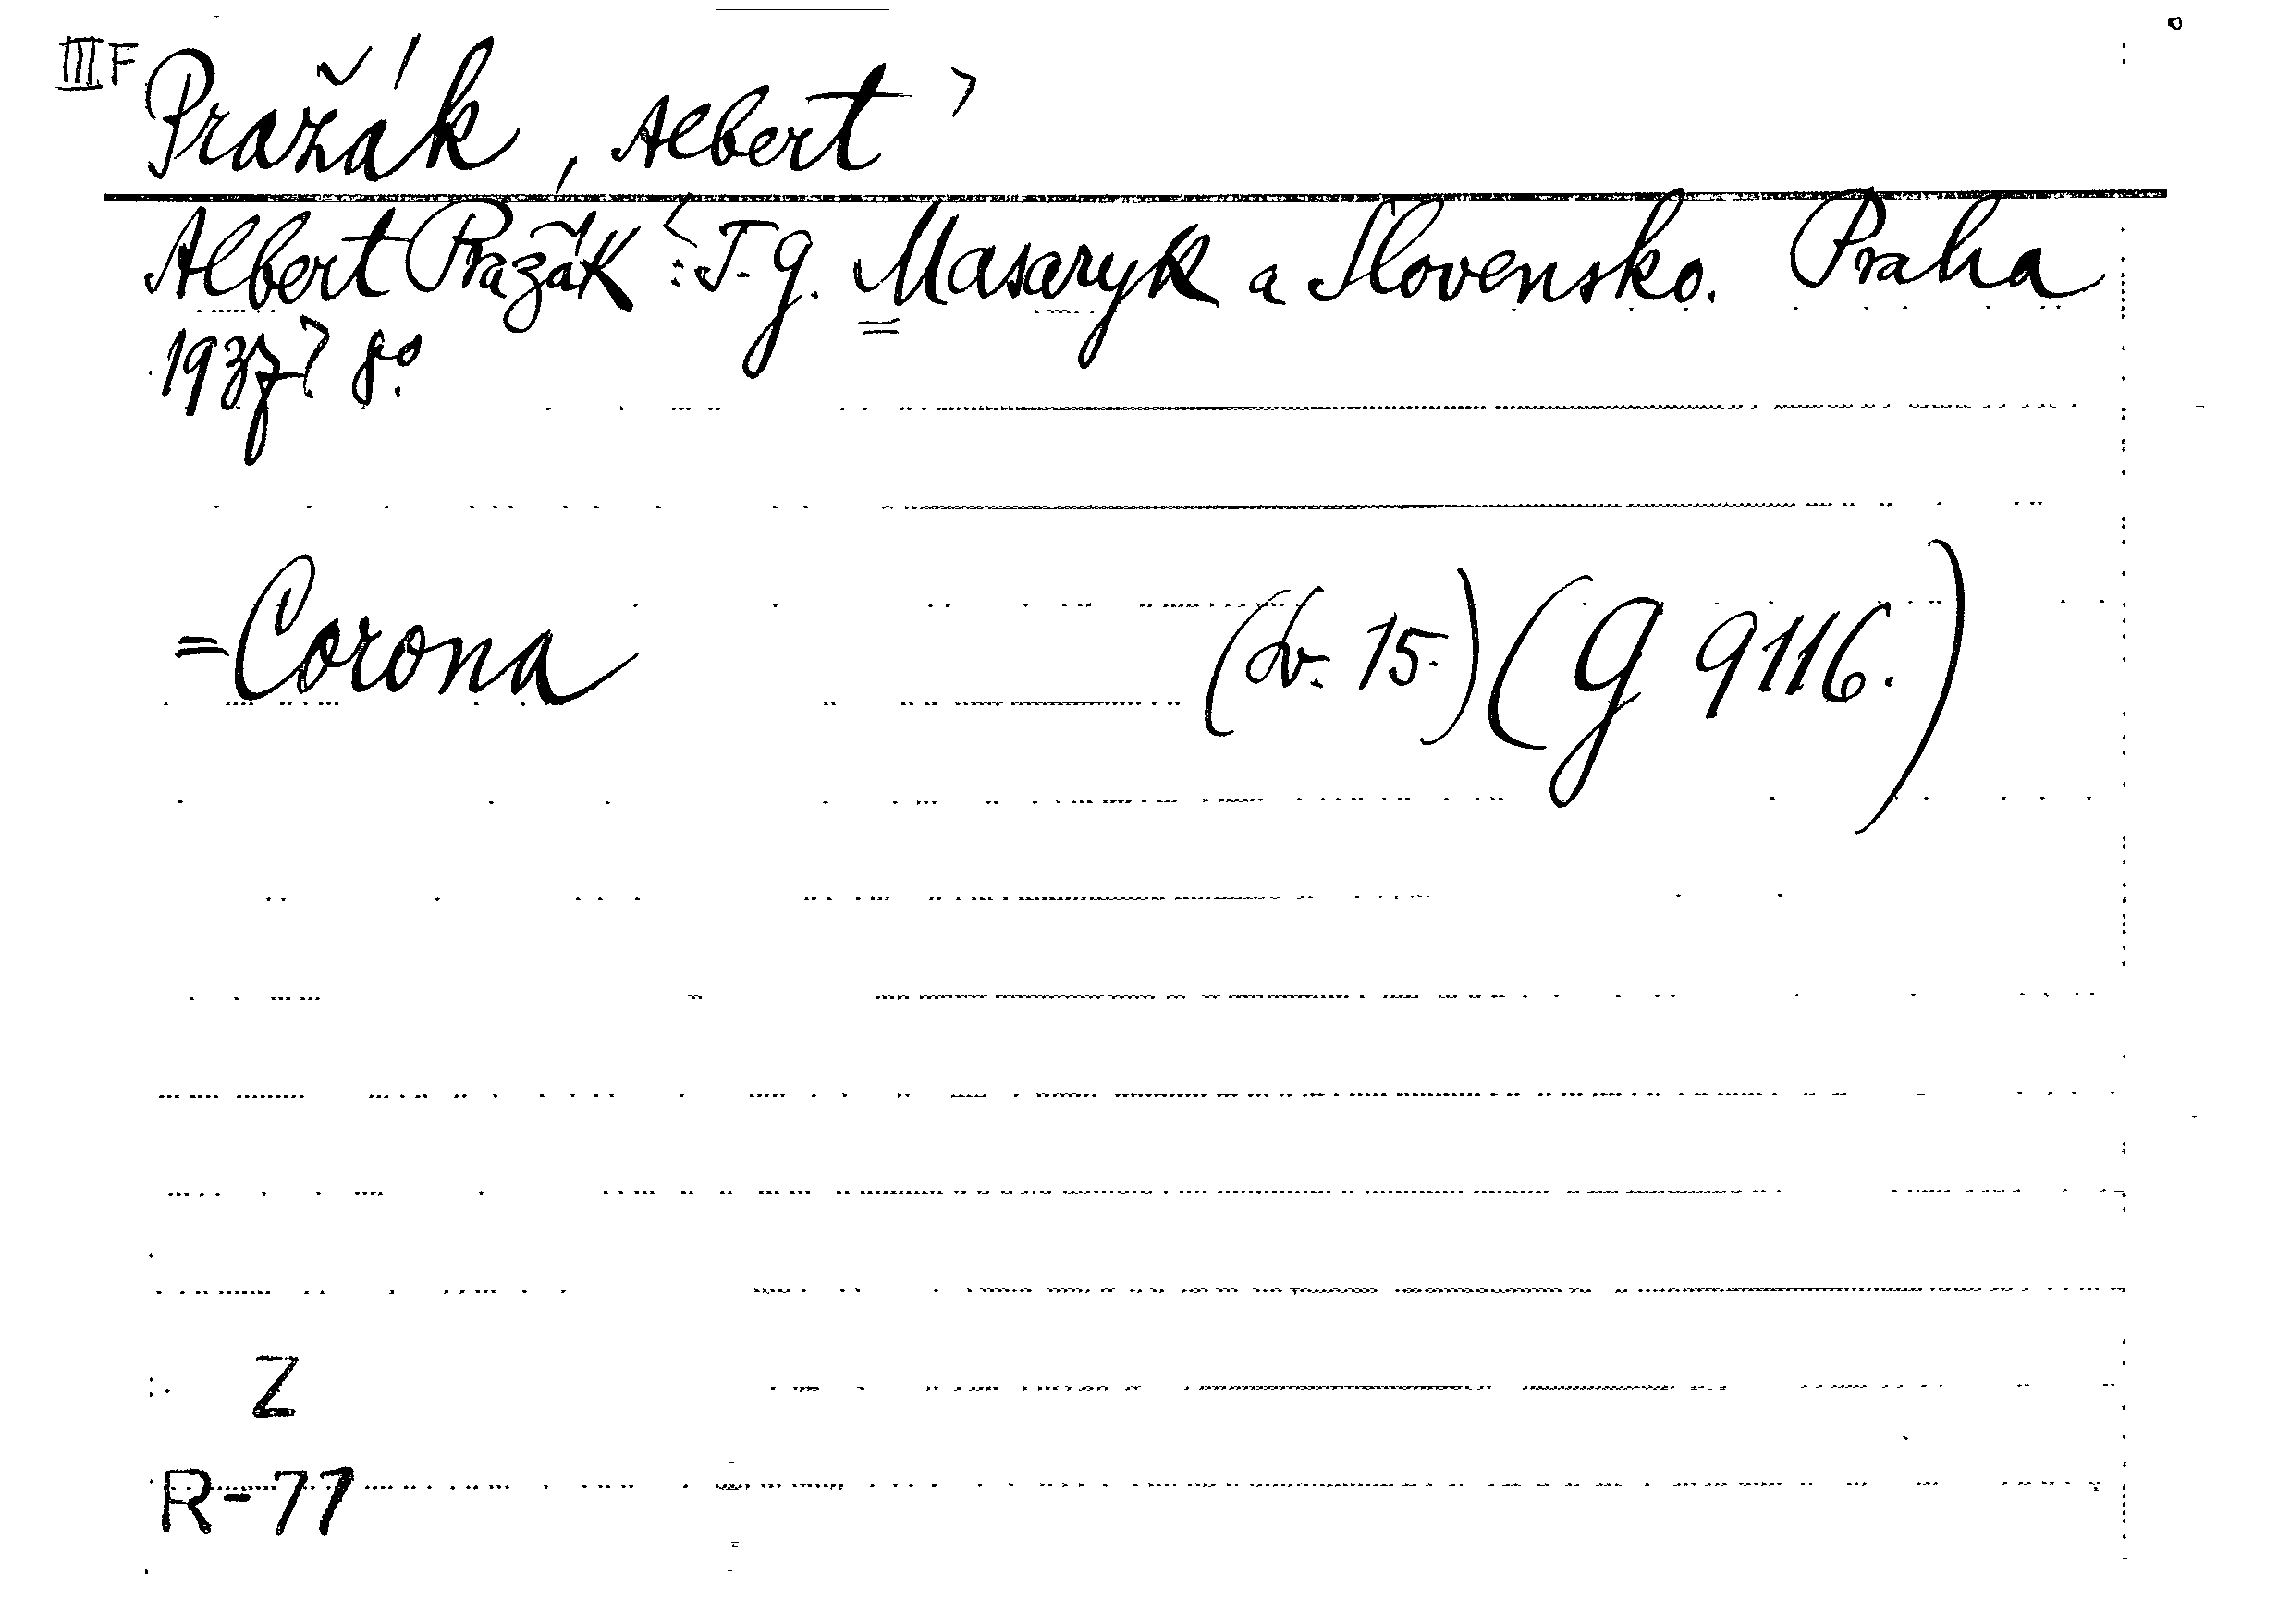 III F
Pražák, Albert
Albert Pražák: T. G. Masaryk a Slovensko. Praha
1937 8°.
=Corona (sv. 15.) (G 9116.)
Z
R-77